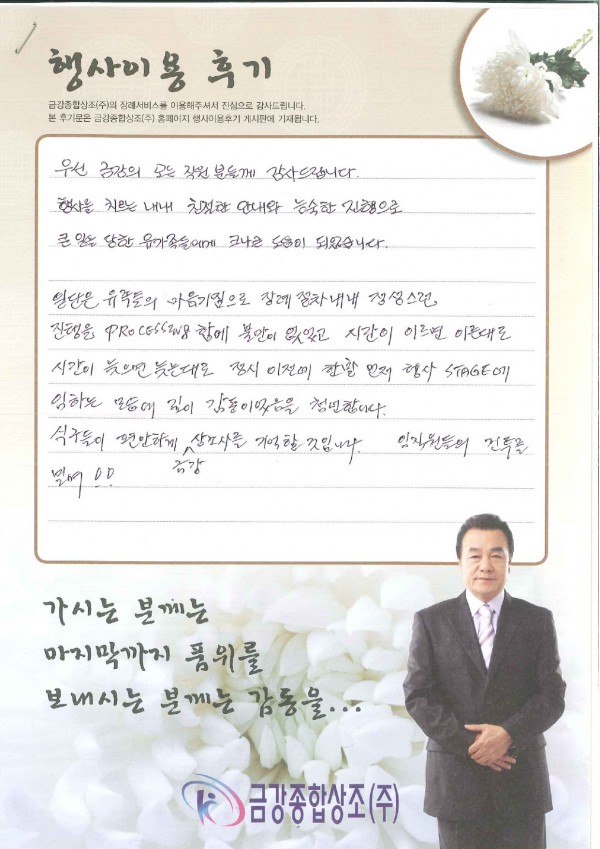 행사이용 후기
금강종합상조(주)의 장례서비스를 이용해주셔서 진심으로 감사드립니다.
본 후기문은 금강종합상조(주) 홈페이지 행사이용후기 게시판에 기재됩니다.
우선 금강의 모든 직원 분들께 감사드립니다.
행사를 치르는 내내 친절한 안내와 능숙한 진행으로
큰 일을 당한 유가족들에게 크나큰 도움이 되었습니다.
일단은 유족들의 마음가짐으로 장례 절차내내 정성스런
진행을 PROCESSING 함에 불만이 없었고 시간이 이르면 이른대로
시간이 늦으면 늦는대로 정시 이전에 한발 먼저 행사 STAGE에
임하는 모습에 깊이 감동이었음을 첨언합니다.
식구들이 편안하게 금강 상조사를 기억할 것입니다. 임직원들의 건투를
빌며 !!
가시는 분께는
마지막까지 품위를
보내시는 분께는 감동을...
금강종합상조(주)